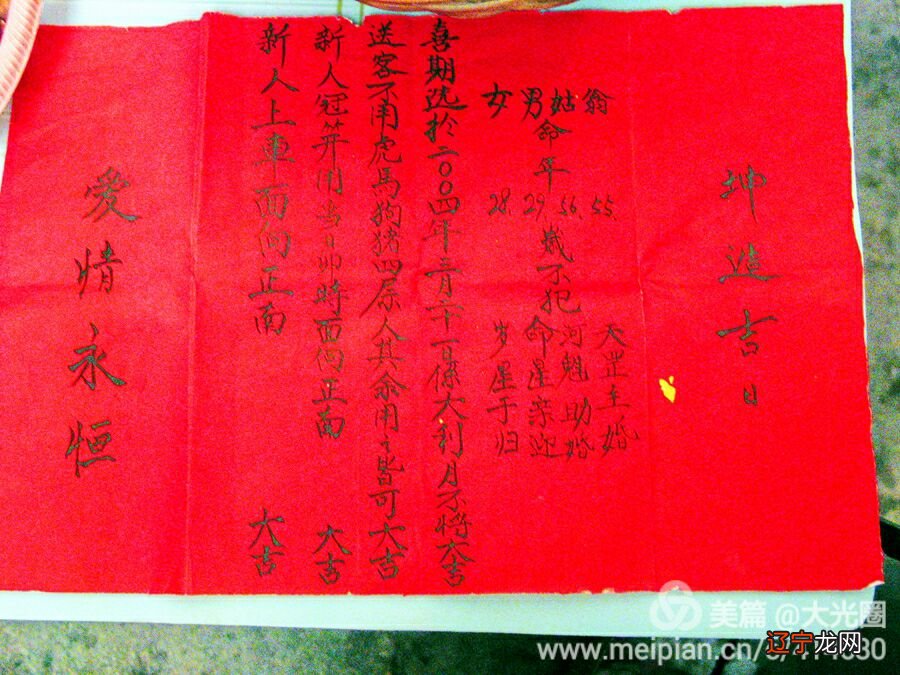 坤造吉日
翁 55. 天罡主婚
姑 56. 河魁助婚
命年 嵗不犯
男 29. 命星亲迎
女 28. 岁星于归
喜期选於二00四年三月二十一日係大利月不將大吉
送客不用虎馬狗猪四属人其余用之皆可大吉
新人冠笄用当日卯時面向正南 大吉
新人上車面向正南 大吉
愛情永恒
美篇 @大光圈
www.meipian.cn/
辽宁龙网